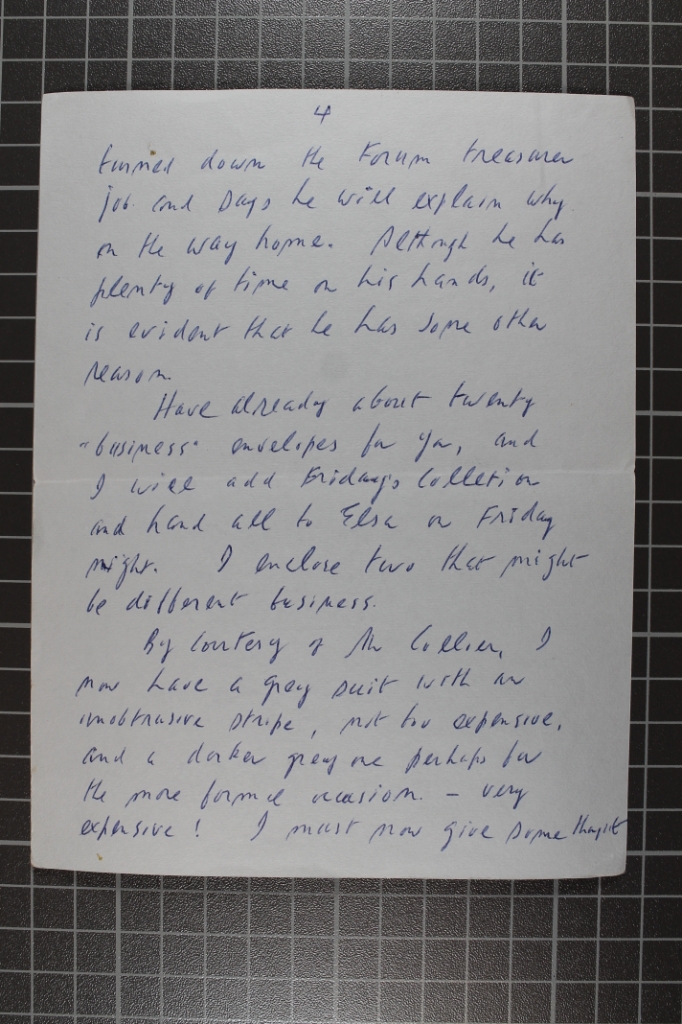 4
turned down the Forum treasurer
job and says he will explain why
on the way home. Although he has
plenty of time on his hands, it
is evident that he has some other
reason.
Have already about twenty
"business" envelopes for you, and
I will add Friday's Colletion
and hand all to Elsa on Friday
night. I enclose two that might
be different business.
By Courtesy of Mr Collier, I
now have a grey suit with an
unobtrusive stripe, not too expensive,
and a darker grey one perhaps for
the more formal occasion - very
expensive! I must now give some thought